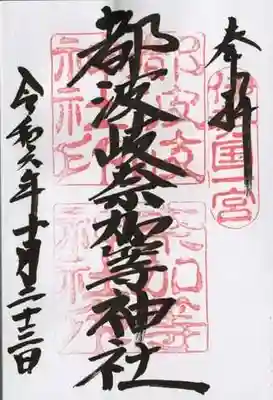 奉拝
伊勢国一宮
都波岐奈加等神社
都波岐
神社印
奈加等
令和六年十月二十三日